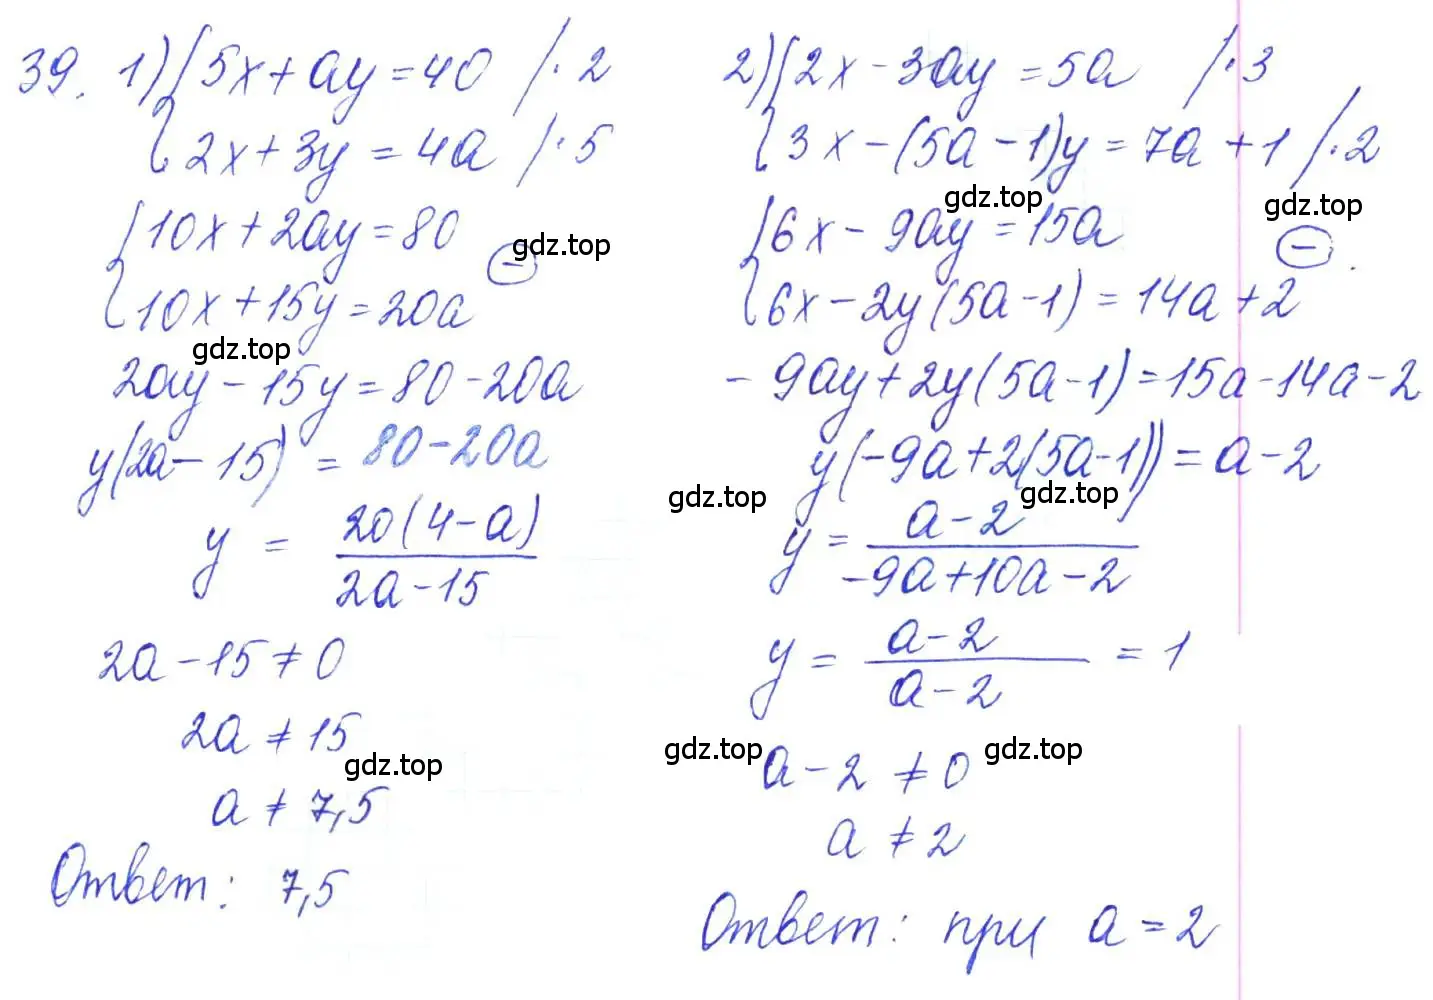 39. 1) { 5x + ay = 40 / · 2
2x + 3y = 4a / · 5
{ 10x + 2ay = 80
gdz.top
⊖
10x + 15y = 20a
gdz.top
20ay - 15y = 80 - 20a
y(2a - 15) = 80 - 20a
y = 20(4 - a) / 2a - 15
2a - 15 ≠ 0
2a ≠ 15
gdz.top
a ≠ 7,5
Ответ: 7,5
2) { 2x - 3ay = 5a / · 3
3x - (5a - 1)y = 7a + 1 / · 2
gdz.top
gdz.top
{ 6x - 9ay = 15a
⊖
6x - 2y(5a - 1) = 14a + 2
- 9ay + 2y(5a - 1) = 15a - 14a - 2
y(-9a + 2(5a - 1)) = a - 2
gdz.top
gdz.top
y = a - 2 / -9a + 10a - 2
y = a - 2 / a - 2 = 1
gdz.top
gdz.top
a - 2 ≠ 0
a ≠ 2
Ответ: при a = 2